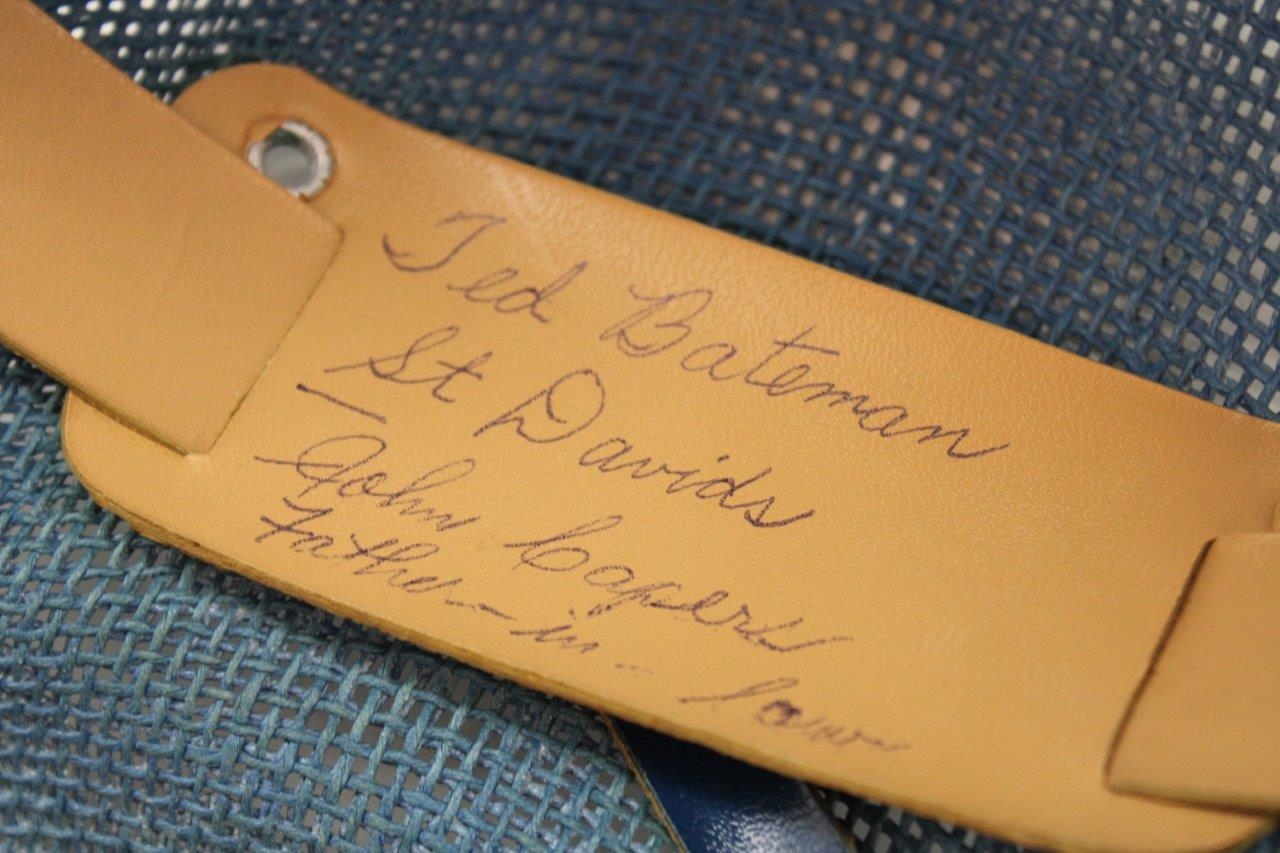 Ted Bateman
St Davids
—
John Capers
Father-in-law